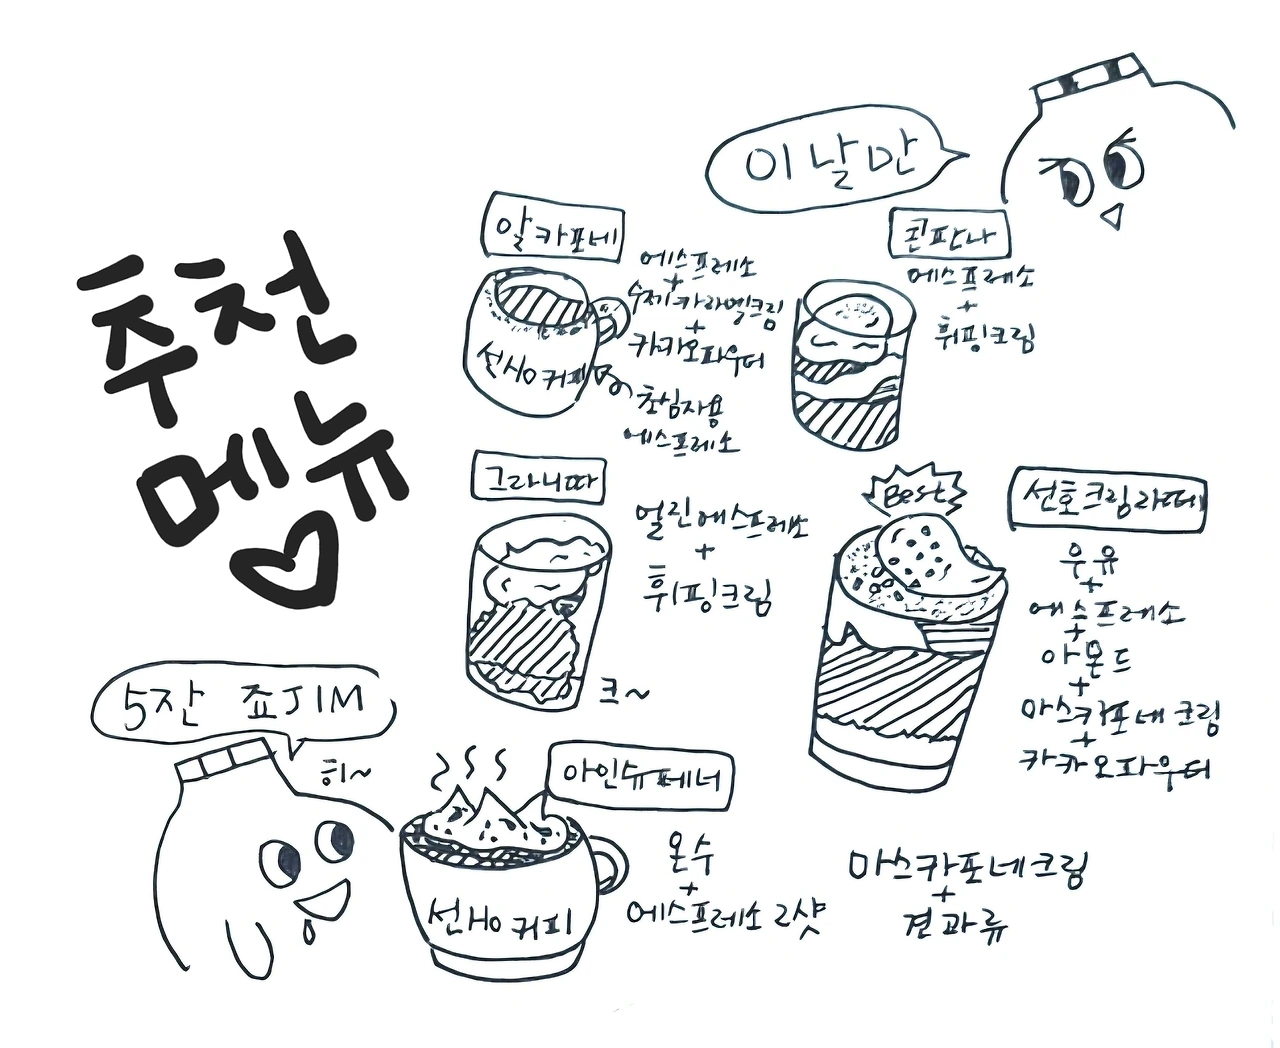 추천
메뉴
이날만
알카포네
에스프레소
+
수제카라멜크림
+
카카오파우더
선HO커피
초심자용
에스프레소
콘파나
에스프레소
+
휘핑크림
그라니따
얼린에스프레소
+
휘핑크림
크~
Best
선호크림라떼
우유
+
에스프레소
+
아몬드
+
마스카포네크림
+
카카오파우더
5잔 죠JIM
히~
아인슈페너
온수
+
에스프레소 2샷
선HO커피
마스카포네크림
+
견과류